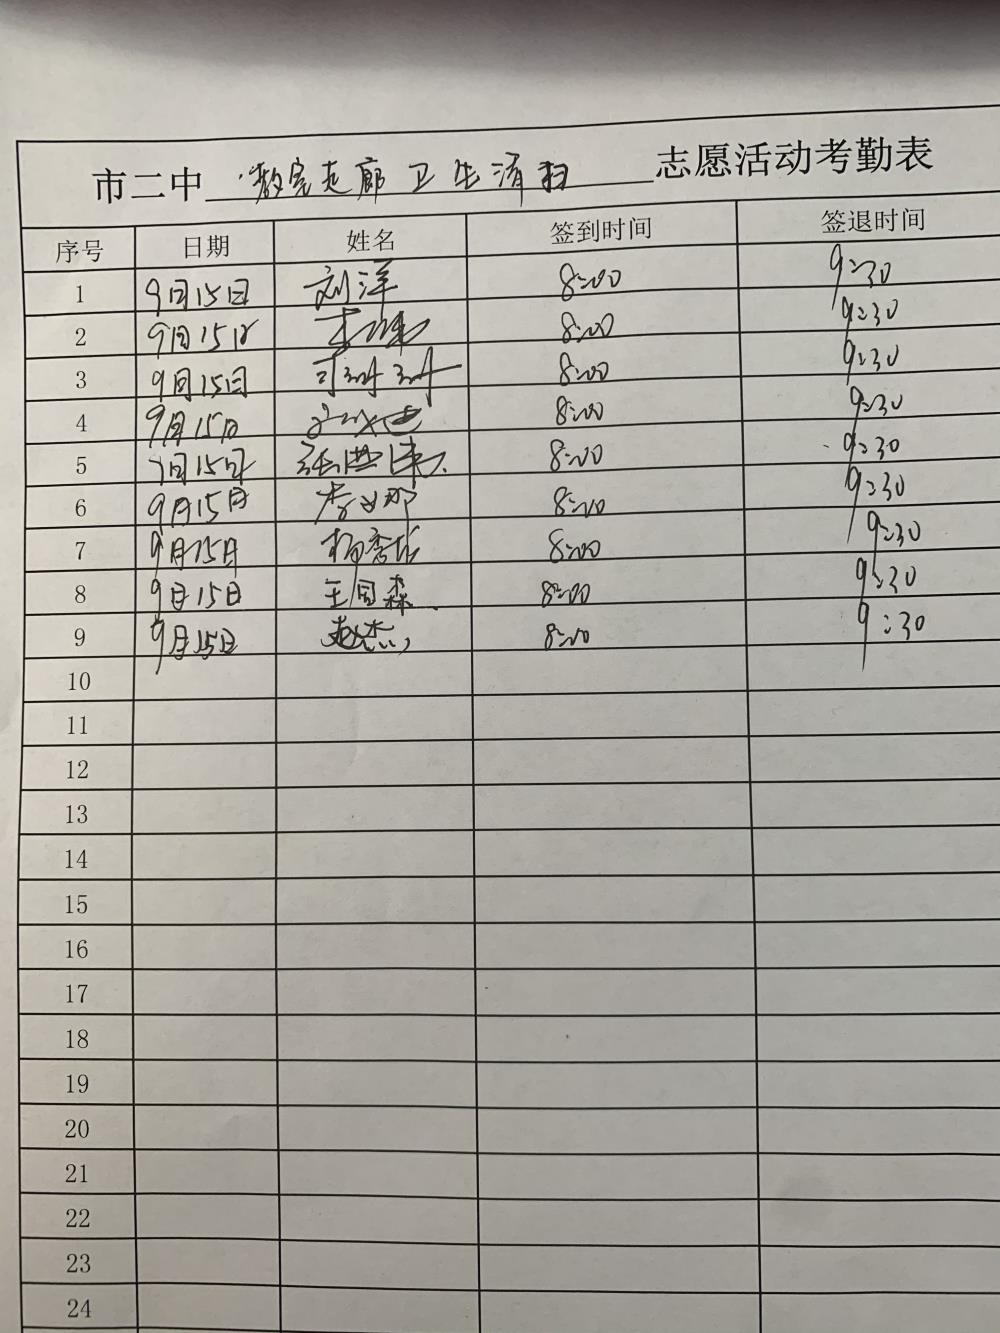 市二中 教室走廊卫生清扫 志愿活动考勤表
序号 日期 姓名 签到时间 签退时间
1 9月15日 刘洋 8:00 9:30
2 9月15日 8:00 9:30
3 9月15日 8:00 9:30
4 9月15日 8:00 9:30
5 9月15日 8:00 9:30
6 9月15日 李 那 8:00 9:30
7 9月15日 杨秀 8:00 9:30
8 9月15日 王国森 8:00 9:30
9 9月15日 赵杰 8:00 9:30
10
11
12
13
14
15
16
17
18
19
20
21
22
23
24